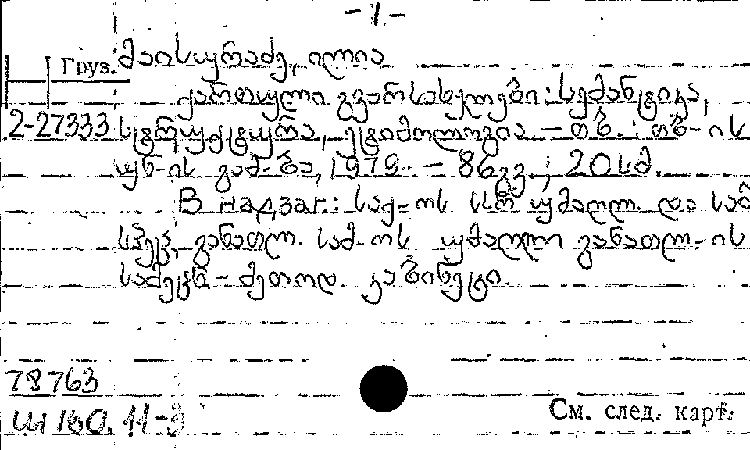 -1.-
Груз. მაისურაძე, ილია
ქართული გვარსახელები: სემანტიკა,
2-27333 სტრუქტურა, ეტიმოლოგია. – თბ.: თბ-ის
უნ-ის გამ-ბა, 1979. – 86გვ.; 20სმ.
В надзаг.: საქ-ოს სსრ უმაღლ. და საშ.
სპეც. განათლ. სამ-ოს უმაღლ. განათლ-ის
სამეცნ-მეთოდ. კაბინეტი.
78763
Ш160.11-3
См. след. карт.